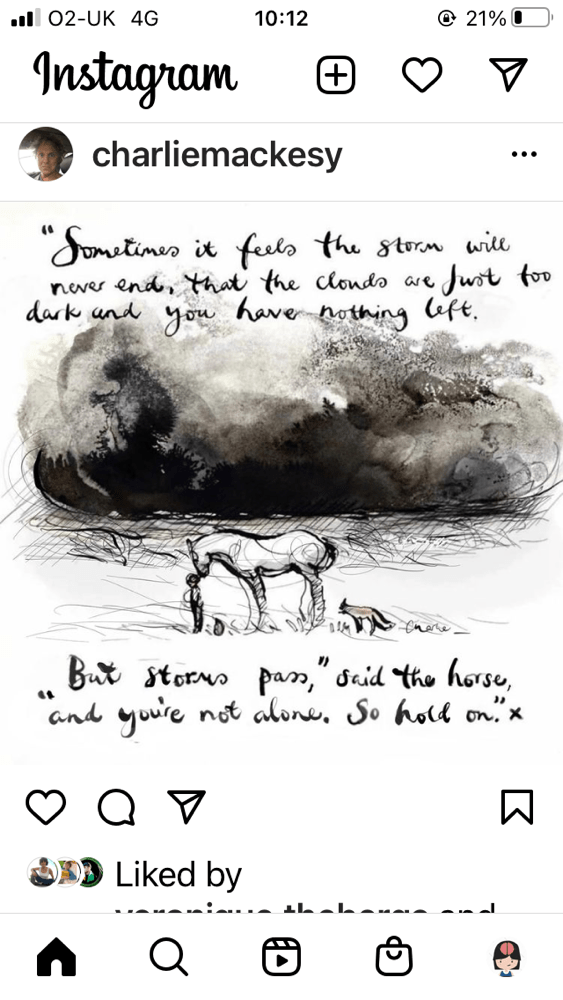 O2-UK 4G 10:12 21%
Instagram
charliemackesy
“Sometimes it feels the storm will
never end, that the clouds are just too
dark and you have nothing left.
Charlie
But storms pass,” said the horse,
“and you're not alone. So hold on.” x
Liked by